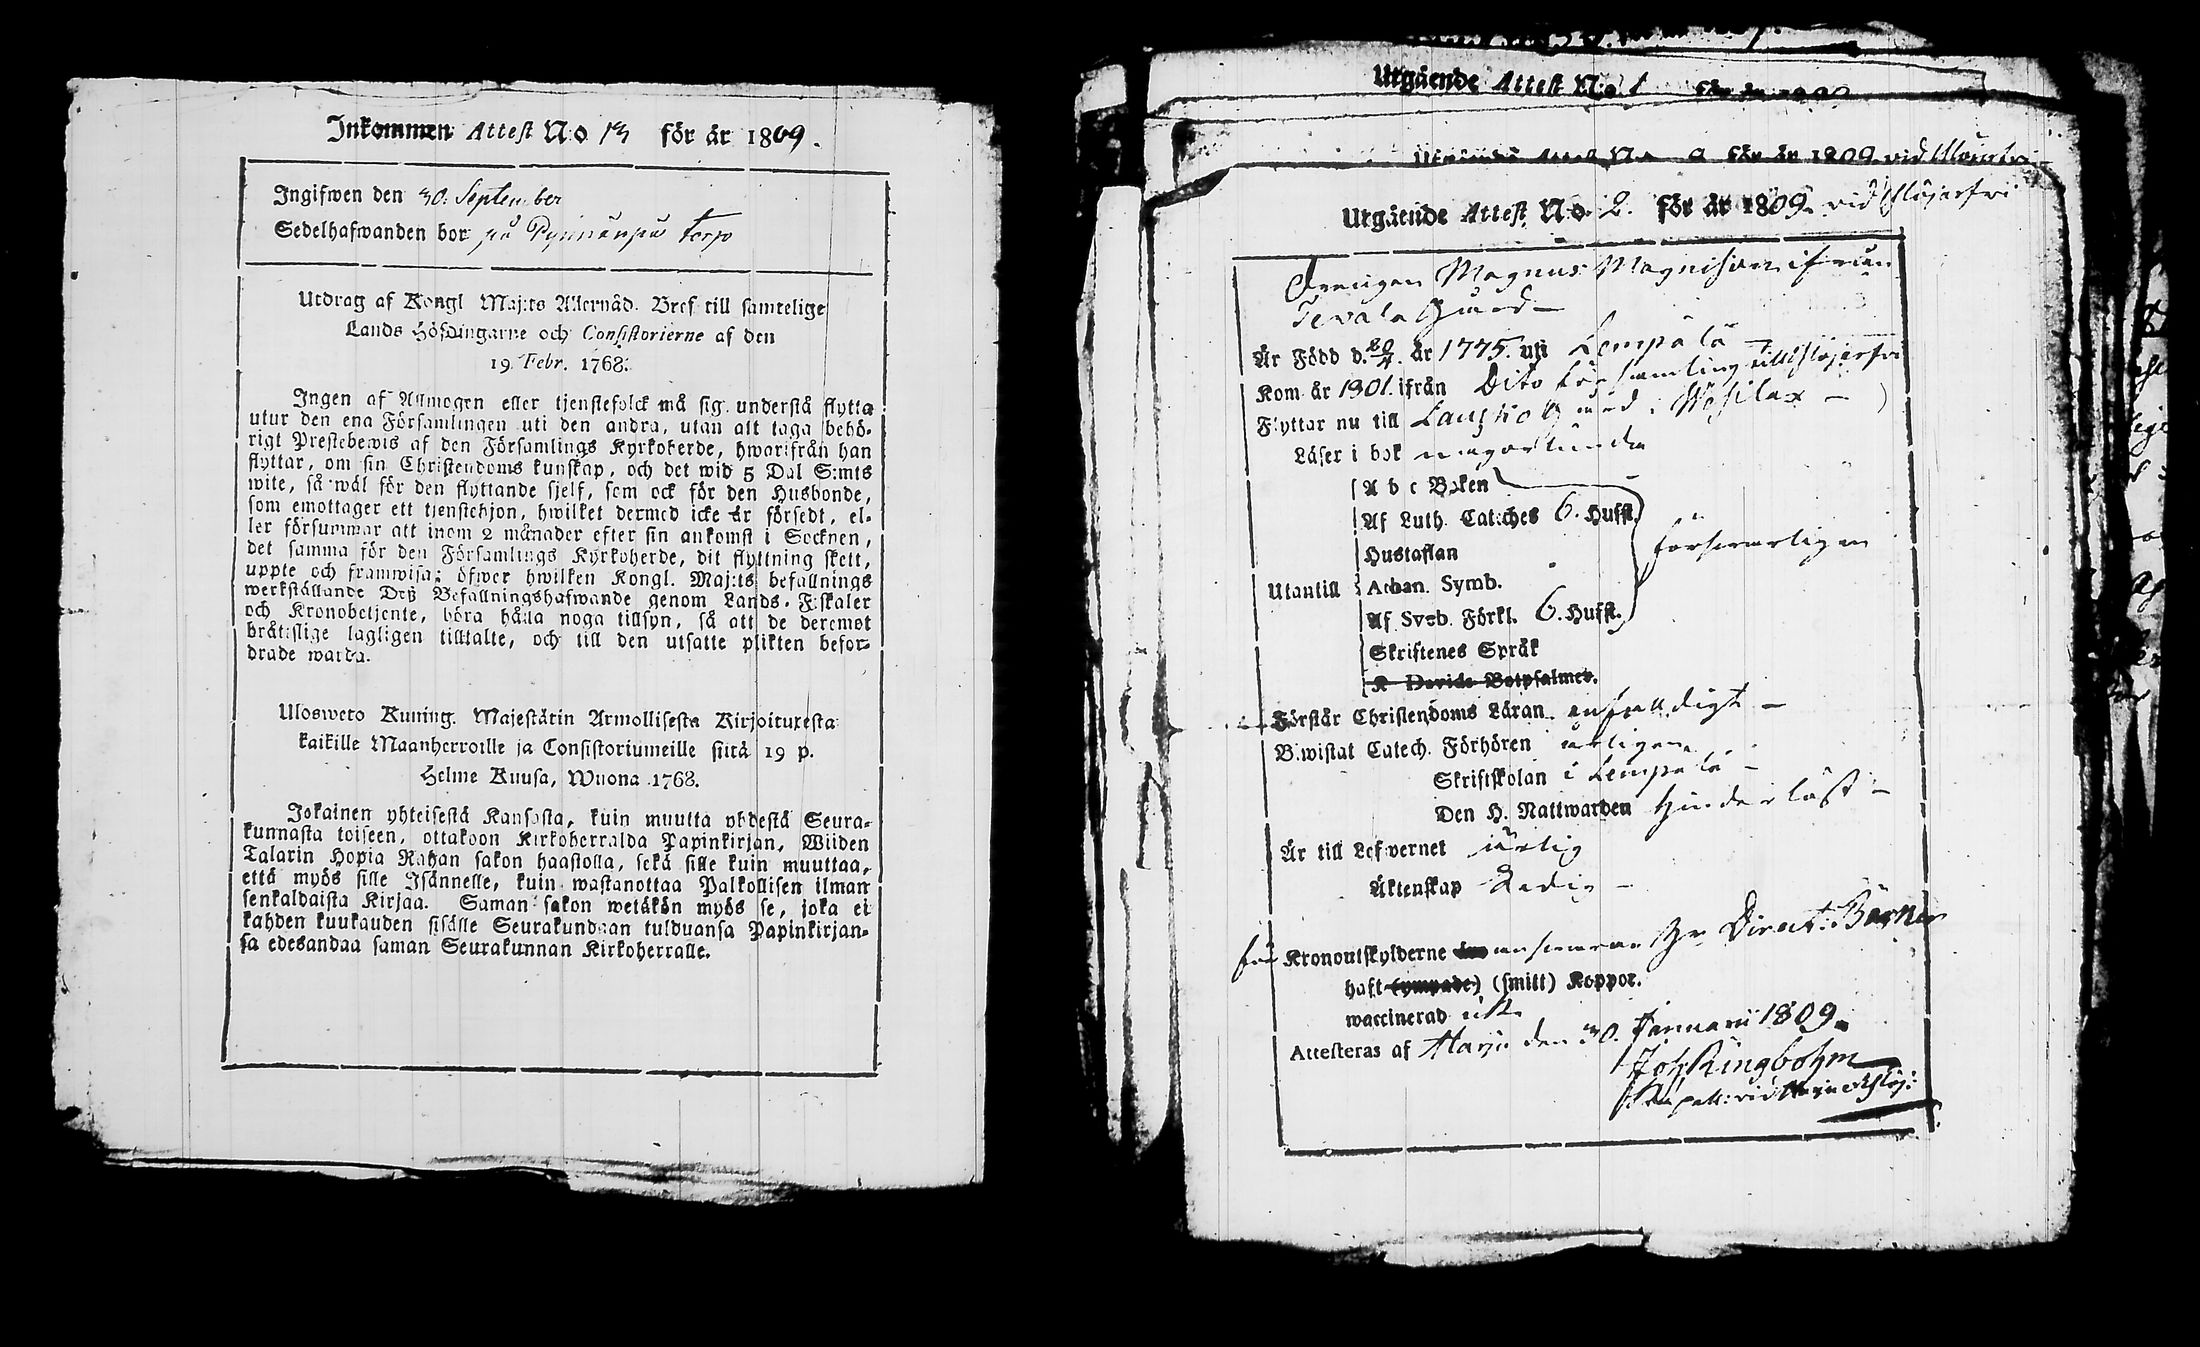 Inkommen Attest N:o 13 för år 1809.
Ingifwen den 30. September
Sedelhafwanden bor på torp
Utdrag af Kongl Maj:ts Allernåd. Bref till samtelige
Lands Höfdingarne och Consistorierne af den
19 Febr. 1768.
Ingen af Allmogen eller tjenstefolck må sig understå flytta
utur den ena Församlingen uti den andra, utan att taga behö-
rigt Prestebewis af den Församlings Kyrkoherde, hwarifrån han
flyttar, om sin Christendoms kunskap, och det wid 5 Dal S:mts
wite, så wäl för den flyttande sjelf, som ock för den Husbonde,
som emottager ett tjenstehjon, hwilket dermed icke är försedt, el-
ler försummar att inom 2 månader efter sin ankomst i Socknen,
det samma för den Församlings Kyrkoherde, dit flyttning skett,
uppte och framwisa; öfwer hwilken Kongl. Maj:ts befallnings
werkställande Deß Befallningshafwande genom Lands-Fiskaler
och Kronobetjente, böra hålla noga tillsyn, så att de deremot
bråtislige lagligen tilltalte, och till den utsatte plikten befor-
drade warda.
Ulosweto Kuning. Majestätin Armollisesta Kirjoituxesta
kaikille Maanherroille ja Consistoriumeille siitä 19 p.
Helme Kuusa, Wuona 1768.
Jokainen yhteisestä Kansasta, kuin muutta yhdestä Seura-
kunnasta toiseen, ottakoon Kirkoherralda Papinkirjan, Wiiden
Talarin Hopia Rahan sakon haastolla, sekä sille kuin muuttaa,
että myös sille Isännelle, kuin wastanottaa Palkollisen ilman
senkaldaista Kirjaa. Saman sakon wetäkön myös se, joka ei
kahden kuukauden sisälle Seurakundaan tulduansa Papinkirjan-
sa edesandaa saman Seurakunnan Kirkoherralle.
Utgående Attest N:o 1 för år
Utgående Attest N:o för år 1809 vid
Utgående Attest N:o 2. för år 1809. vid Ylöjärfvi
Drengen Magnus Magnisson ifrån
Tevala Gård
Är Född d. 20/4 år 1775. uti Lempälä
Kom år 1801. ifrån Dito Församling till Ylöjärfvi
Flyttar nu till Gård i Wesilax
Läser i bok någorlunda
A b c Boken
Af Luth. Catches 6. Hufst.
Hustaflan
försvarligen
Utantill Athan. Symb.
Af Sveb. Förkl. 6. Hufst.
Skriftenes Språk
K Davids Botpsalmer.
Förstår Christendoms Läran enfaldigt
B.wistat Catech. Förhören årligen
Skriftskolan i Lempälä
Den H. Nattwarden
Är till Lefwernet ärlig
Äktenskap Ledig
för Kronoutskylderne ansvarar Hr Direct:
haft (ympade) (smitt) Koppor.
waccinerad ick
Attesteras af Harju den 30. Januarii 1809.
Joh Ringbohm
Kapell: vid Harju och Ylöj: